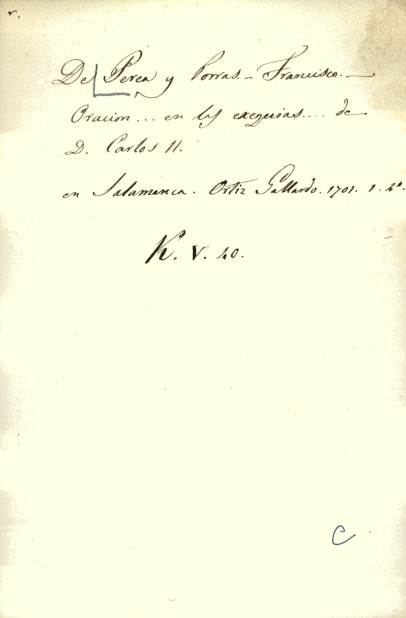 r.
De Perea y Porras - Francisco. -
Oracion... en las exequias.... de
D. Carlos II.
en Salamanca. Ortiz Gallardo. 1701. 1. 4º.
K. V. 20.
C